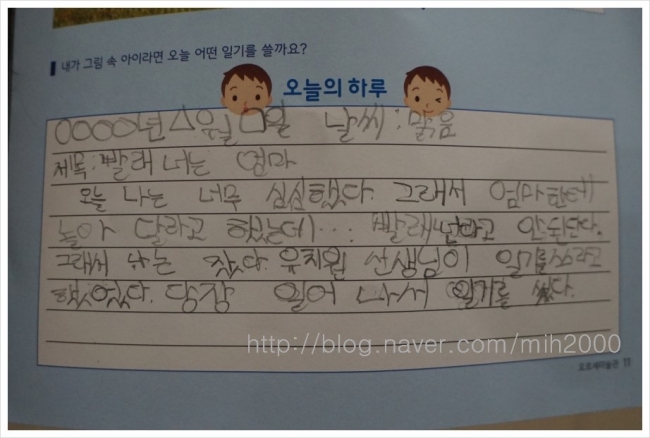 내가 그림 속 아이라면 오늘 어떤 일기를 쓸까요?
오늘의 하루
○○○○년 △월 □일 날씨 : 맑음
제목 : 빨래 너는 엄마
오늘 나는 너무 심심했다. 그래서 엄마한테
놀아 달라고 했는데... 빨래 넌다고 안된단다.
그래서 나는 잤다. 유치원 선생님이 일기를 쓰라고
했었다. 당장 일어나서 일기를 썼다.
http://blog.naver.com/mih2000
오르세미술관 11